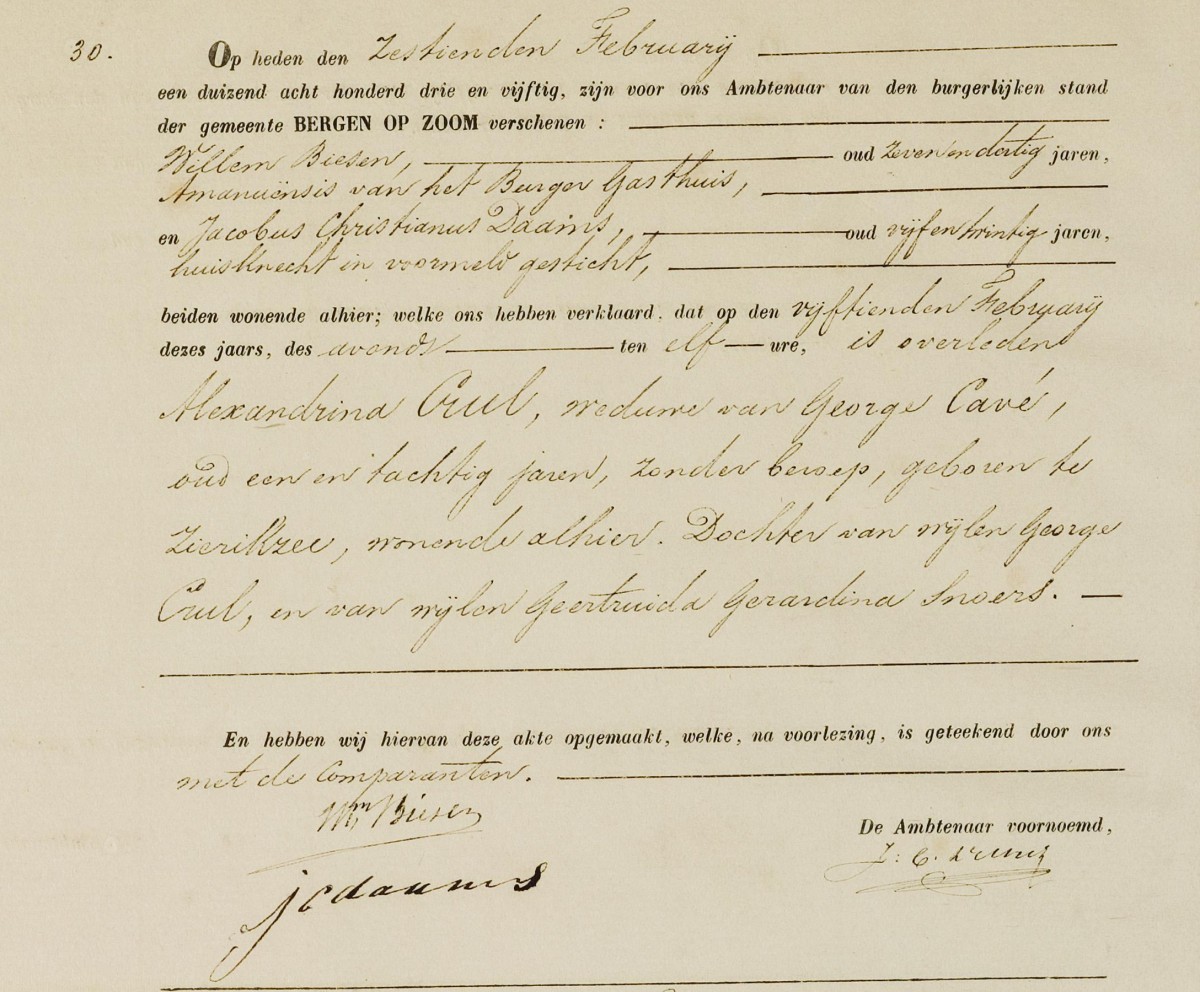 30.
Op heden den Zestienden Februarij
een duizend acht honderd drie en vijftig, zijn voor ons Ambtenaar van den burgerlijken stand
der gemeente BERGEN OP ZOOM verschenen :
Willem Biesen, oud zeven en dertig jaren,
Amanuënsis van het Burger Gasthuis,
en Jacobus Christianus Daams, oud vijf en twintig jaren,
huisknecht in voormeld gesticht,
beiden wonende alhier; welke ons hebben verklaard, dat op den vijftienden Februarij
dezes jaars, des avonds ten elf ure, is overleden
Alexandrina Crul, weduwe van George Cavé,
oud een en tachtig jaren, zonder beroep, geboren te
Zierikzee, wonende alhier. Dochter van wijlen George
Crul, en van wijlen Geertruida Gerardina Snoers.
En hebben wij hiervan deze akte opgemaakt, welke, na voorlezing, is geteekend door ons
met de Comparanten.
Wm Biesen
De Ambtenaar voornoemd,
J: C.
jcdaams